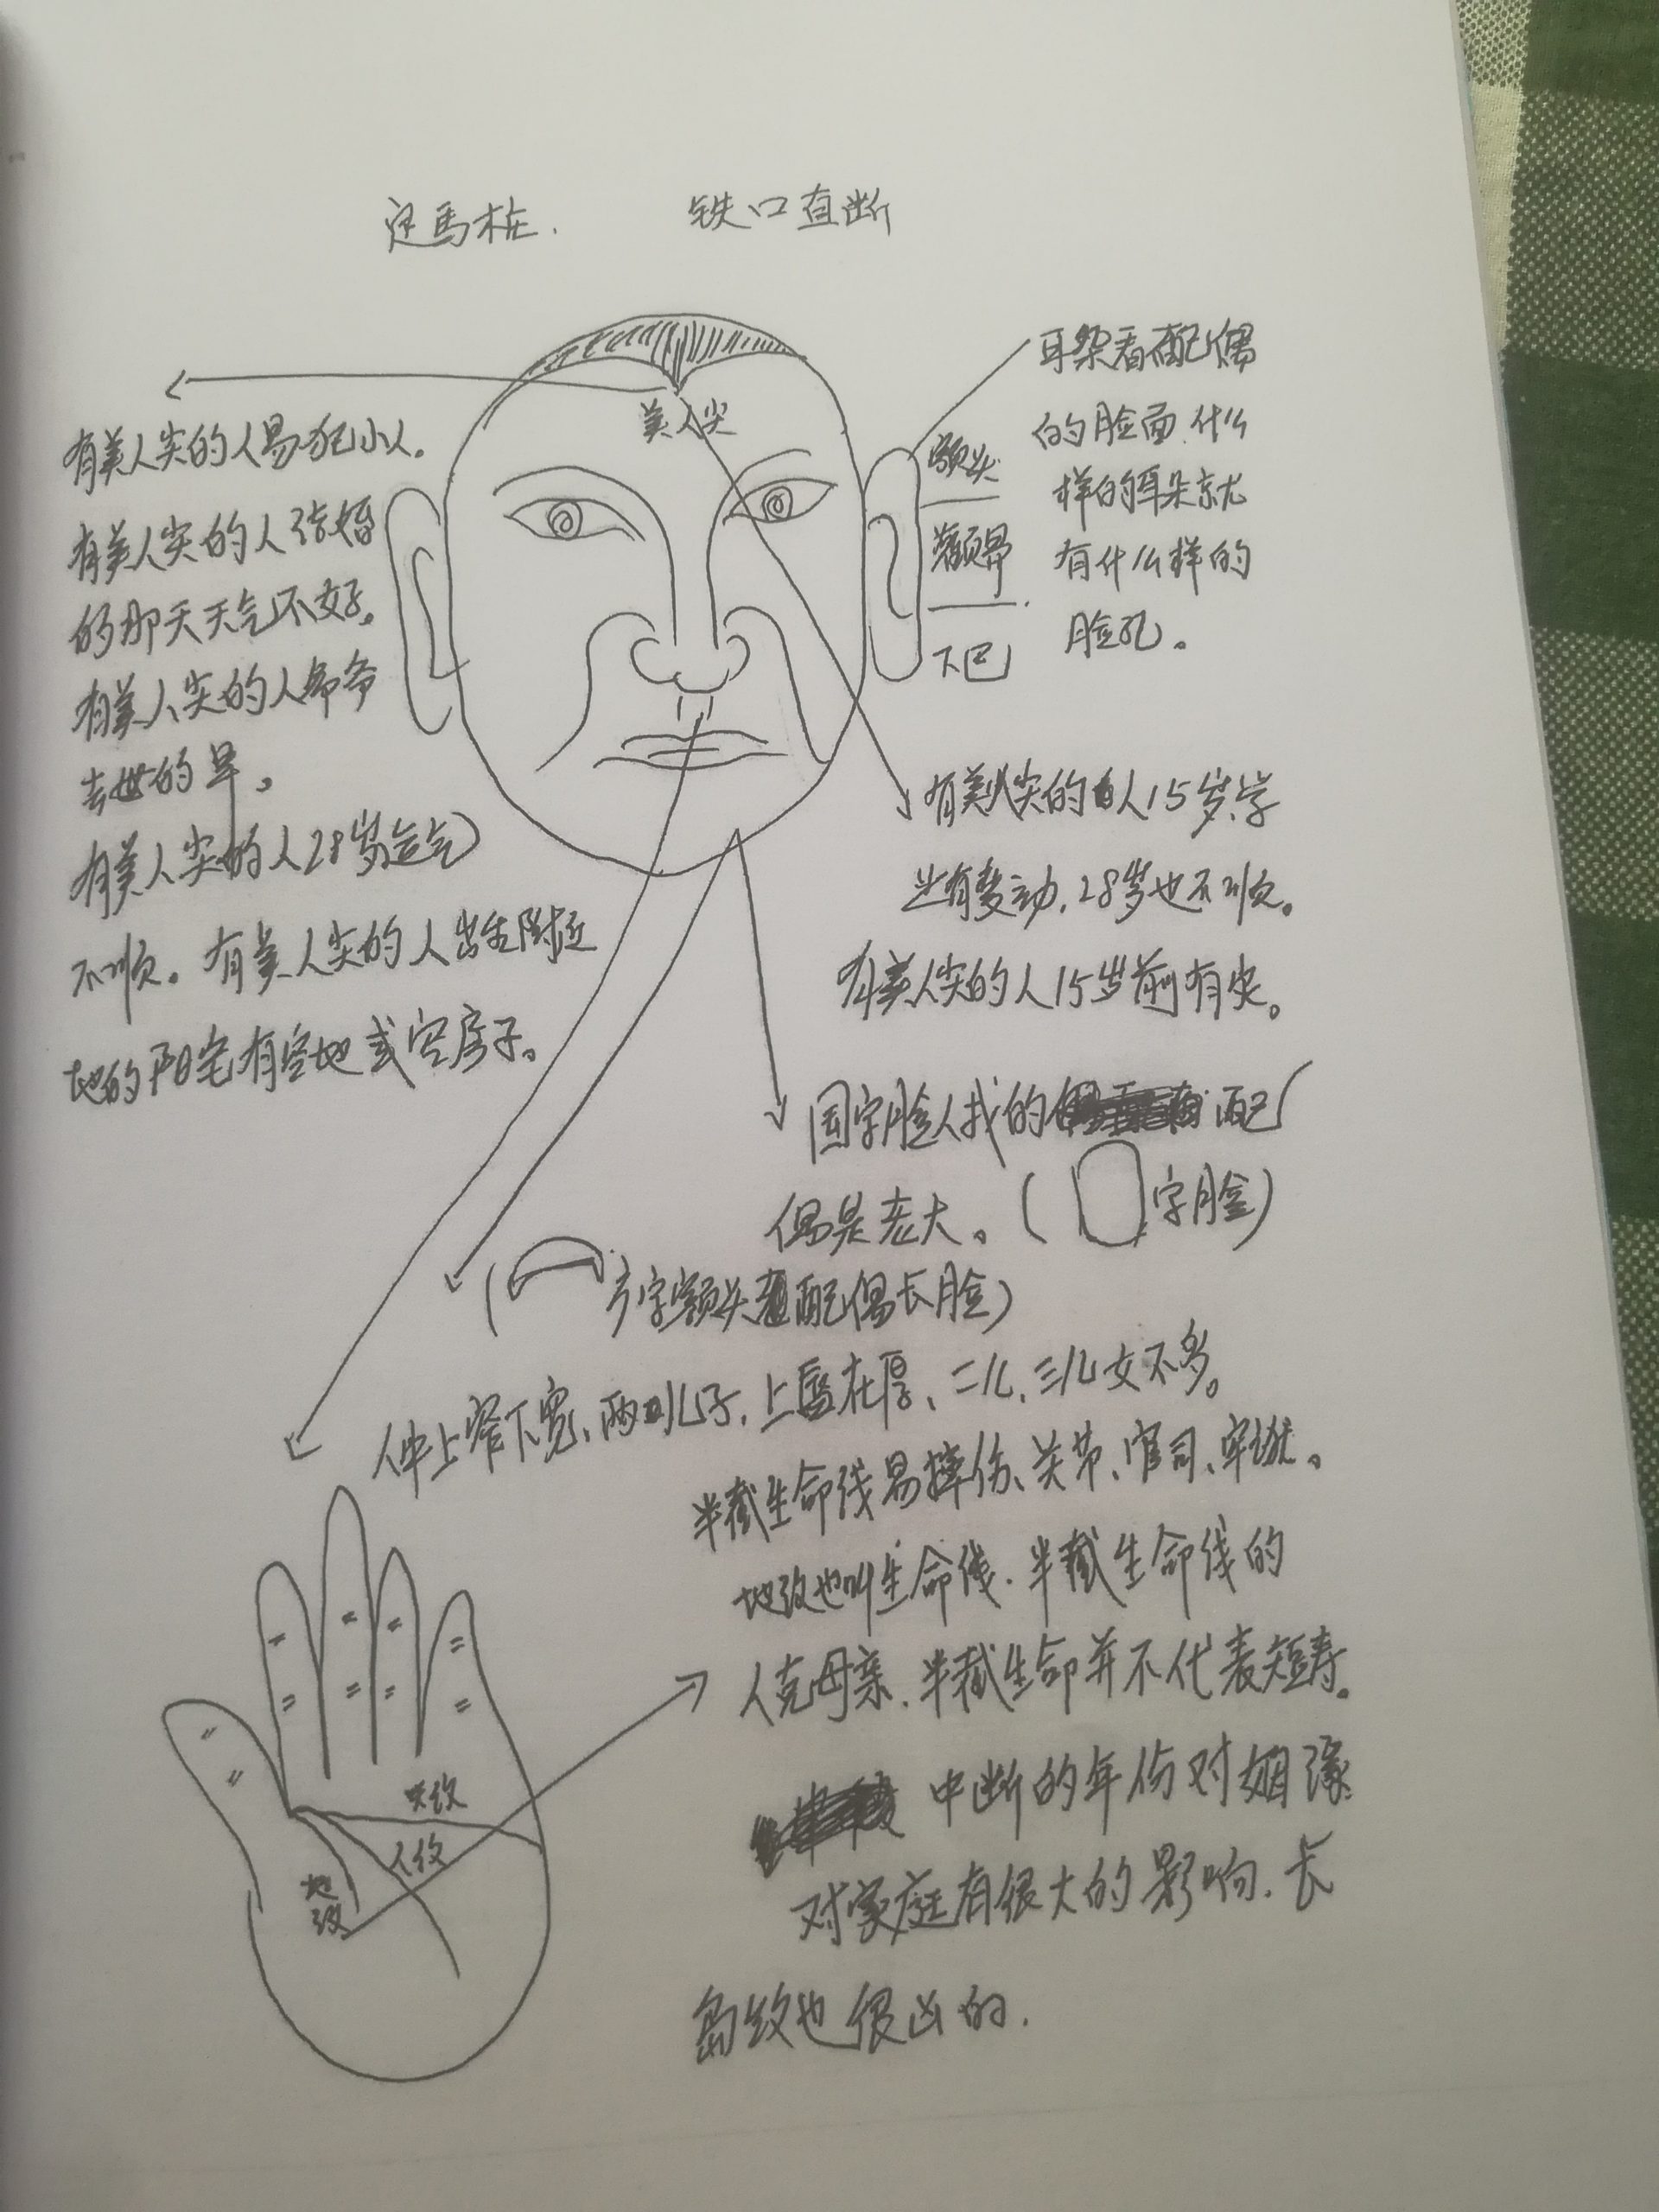 定馬桩. 铁口直断
美人尖
有美人尖的人易犯小人.
有美人尖的人结婚
的那天天气不好。
有美人尖的人爷爷
去世的早。
有美人尖的人28岁运气
不顺。有美人尖的人出生附近
地的阳宅有空地或空房子。
耳朵看配偶
的脸面.什么
样的耳朵就
有什么样的
脸孔。
额头
颧鼻
下巴
有美人尖的人15岁学
业有变动,28岁也不顺。
有美人尖的人15岁前有灾。
国字脸人找的配
偶是老大。( 字脸)
( 字额头 配偶长脸)
人中上窄下宽、两儿子,上唇在厚、二儿,三儿女不多。
半截生命线易摔伤、关节、官司、牢狱。
地纹也叫生命线.半截生命线的
人克母亲.半截生命并不代表短寿。
中断的年份对姻缘
对家庭有很大的影响.长
岛纹也很凶的.
天纹
人纹
地
纹